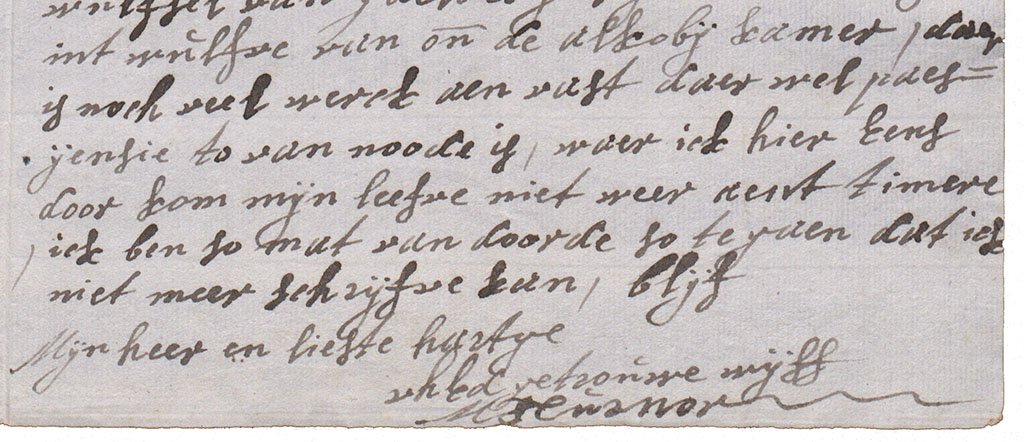 wulfsel van
int wulfve van on̄ de alkobij kamer, daer
is noch veel werck aen vast daer wel paes=
yensie to van noode is, waer ick hier eens
door kom mijn leefve niet weer aent timere
, ick ben so mat van doorde so te gaen dat ick
niet meer schrijfve kan, blijf
Mijn heer en liefste hartge
uhEd getrouwe wijff
M Teurnor